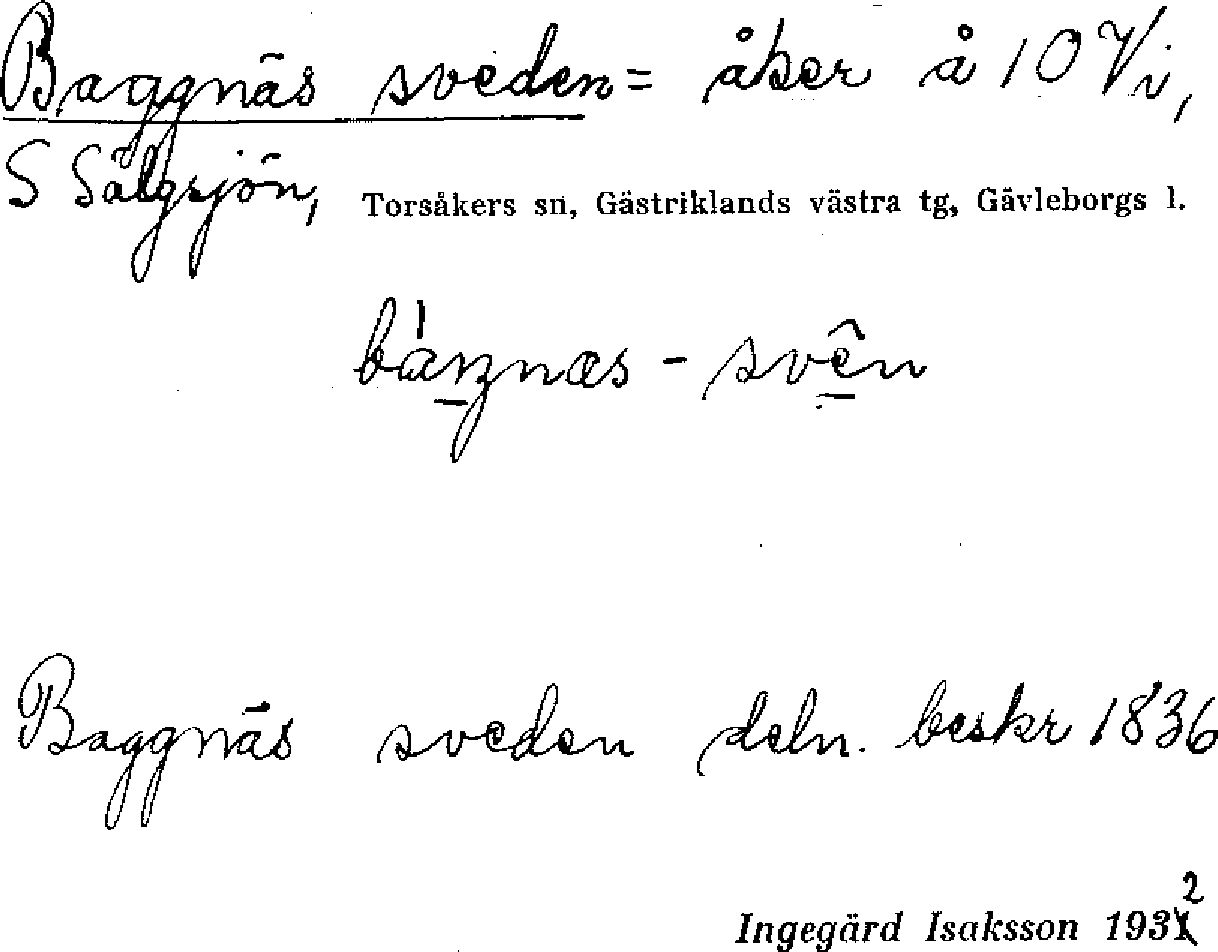 Baggnäs sveden = åker å 10 Vi,
S Sälgsjön, Torsåkers sn, Gästriklands västra tg, Gävleborgs l.
-svên
Baggnäs sveden deln. beskr 1836
Ingegärd Isaksson 1932